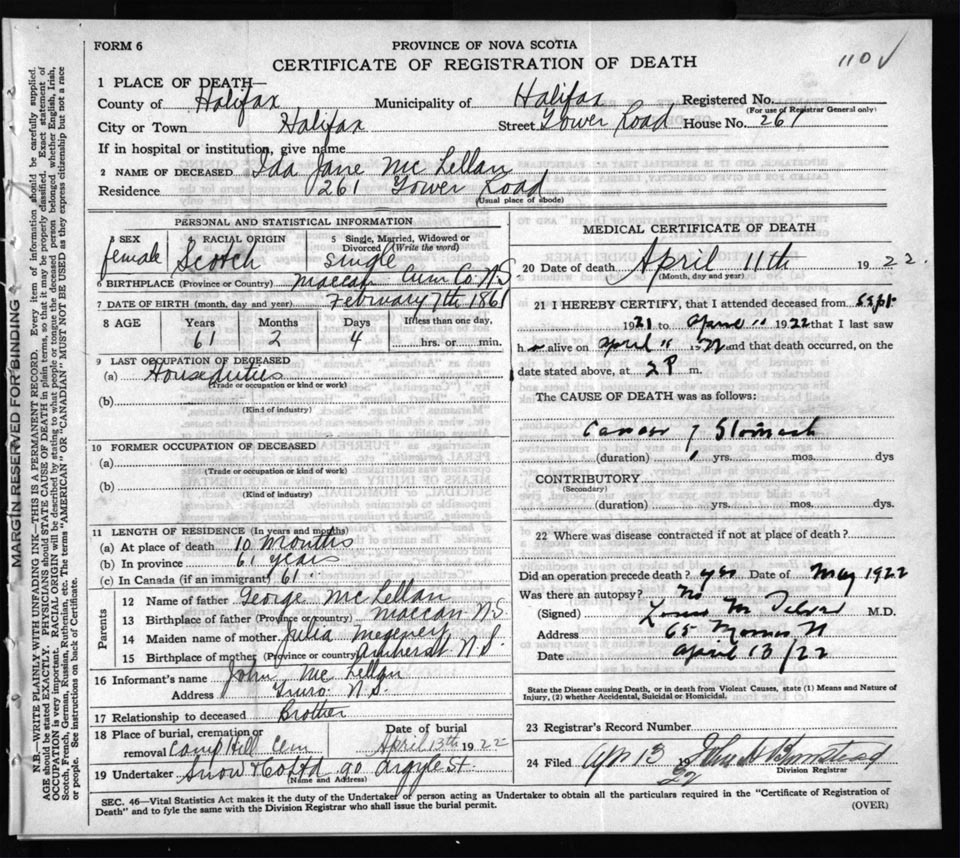 FORM 6
PROVINCE OF NOVA SCOTIA
CERTIFICATE OF REGISTRATION OF DEATH
110 ✓
1 PLACE OF DEATH—
County of Halifax Municipality of Halifax Registered No.
(For use of Registrar General only)
City or Town Halifax Street Tower Road House No. 261
If in hospital or institution, give name
2 NAME OF DECEASED Ida Jane McLellan
Residence 261 Tower Road
(Usual place of abode)
PERSONAL AND STATISTICAL INFORMATION
3 SEX 4 RACIAL ORIGIN 5 Single, Married, Widowed or Divorced (Write the word)
female Scotch single
6 BIRTHPLACE (Province or Country) Maccan Cum Co. N.S
7 DATE OF BIRTH (month, day and year) February 7th 1861
8 AGE Years Months Days If less than one day,
61 2 4 hrs. or min.
9 LAST OCCUPATION OF DECEASED
(a) House duties
(Trade or occupation or kind or work)
(b)
(Kind of industry)
10 FORMER OCCUPATION OF DECEASED
(a)
(Trade or occupation or kind of work)
(b)
(Kind of industry)
11 LENGTH OF RESIDENCE (In years and months)
(a) At place of death 10 months
(b) In province 61 years
(c) In Canada (if an immigrant) 61
Parents
12 Name of father George McLellan
13 Birthplace of father (Province or country) Maccan N S
14 Maiden name of mother Julia
15 Birthplace of mother (Province or country) Amherst N.S.
16 Informant's name John McLellan
Address Truro N.S.
17 Relationship to deceased Brother
18 Place of burial, cremation or removal Camp Hill Cem Date of burial April 13th 1922
19 Undertaker Snow & Co Ltd 90 Argyle St.
(Name and Address)
MEDICAL CERTIFICATE OF DEATH
20 Date of death April 11th 1922.
(Month, day and year)
21 I HEREBY CERTIFY, that I attended deceased from Sept
1921 to April 11 1922 that I last saw
h er alive on April 11 1922 and that death occurred, on the
date stated above, at 2 P m.
The CAUSE OF DEATH was as follows:
Cancer of Stomach
(duration) 1 yrs. mos. dys
CONTRIBUTORY
(Secondary)
(duration) yrs. mos. dys.
22 Where was disease contracted if not at place of death?
Did an operation precede death? yes Date of May 1922
Was there an autopsy? No
(Signed) M.D.
Address 65 Morris St
Date April 13/22
State the Disease causing Death, or in death from Violent Causes, state (1) Means and Nature of Injury, (2) whether Accidental, Suicidal or Homicidal.
23 Registrar's Record Number
24 Filed Apr 13 1922 John
Division Registrar
SEC. 46—Vital Statistics Act makes it the duty of the Undertaker or person acting as Undertaker to obtain all the particulars required in the "Certificate of Registration of
Death" and to fyle the same with the Division Registrar who shall issue the burial permit. (OVER)
MARGIN RESERVED FOR BINDING
N.B.—WRITE PLAINLY WITH UNFADING INK—THIS IS A PERMANENT RECORD. Every item of information should be carefully supplied.
AGE should be stated EXACTLY. PHYSICIANS should STATE CAUSE OF DEATH in plain terms, so that it may be properly classified. Exact statement of
OCCUPATION is very important. RACIAL ORIGIN will be described by stating to what people or tongue the deceased person belonged whether English, Irish,
Scotch, French, German, Russian, Ruthenian, etc. The terms "AMERICAN" OR "CANADIAN" MUST NOT BE USED as they express citizenship but not a race
or people. See instructions on back of Certificate.